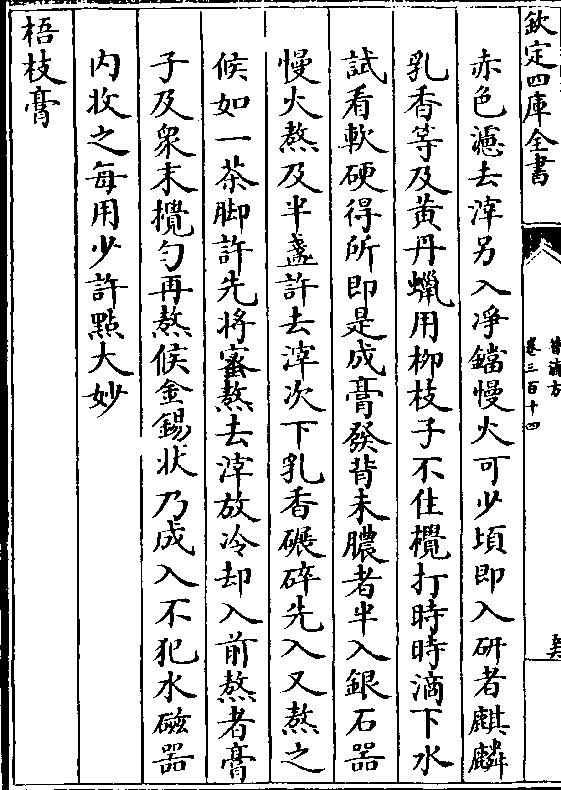 欽定四庫全書
普濟方
卷三百十四
赤色濾去滓另入凈鐺慢火可少頃即入研者麒麟
乳香等及黃丹蠟用栁枝子不住攪打時時滴下水
試看軟硬得所即是成膏發背未膿者半入銀石器
慢火熬及半盞許去滓次下乳香碾碎先入又熬之
候如一茶脚許先将蜜熬去滓放冷却入前熬者膏
子及衆末攪勻再熬候金錫状乃成入不犯水磁器
内收之每用少許點大妙
梧枝膏